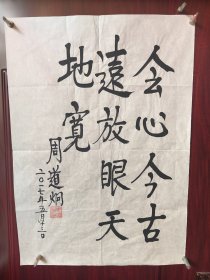 会心今古
遠放眼天
地寬
周道炯
二〇一七年五月十三日